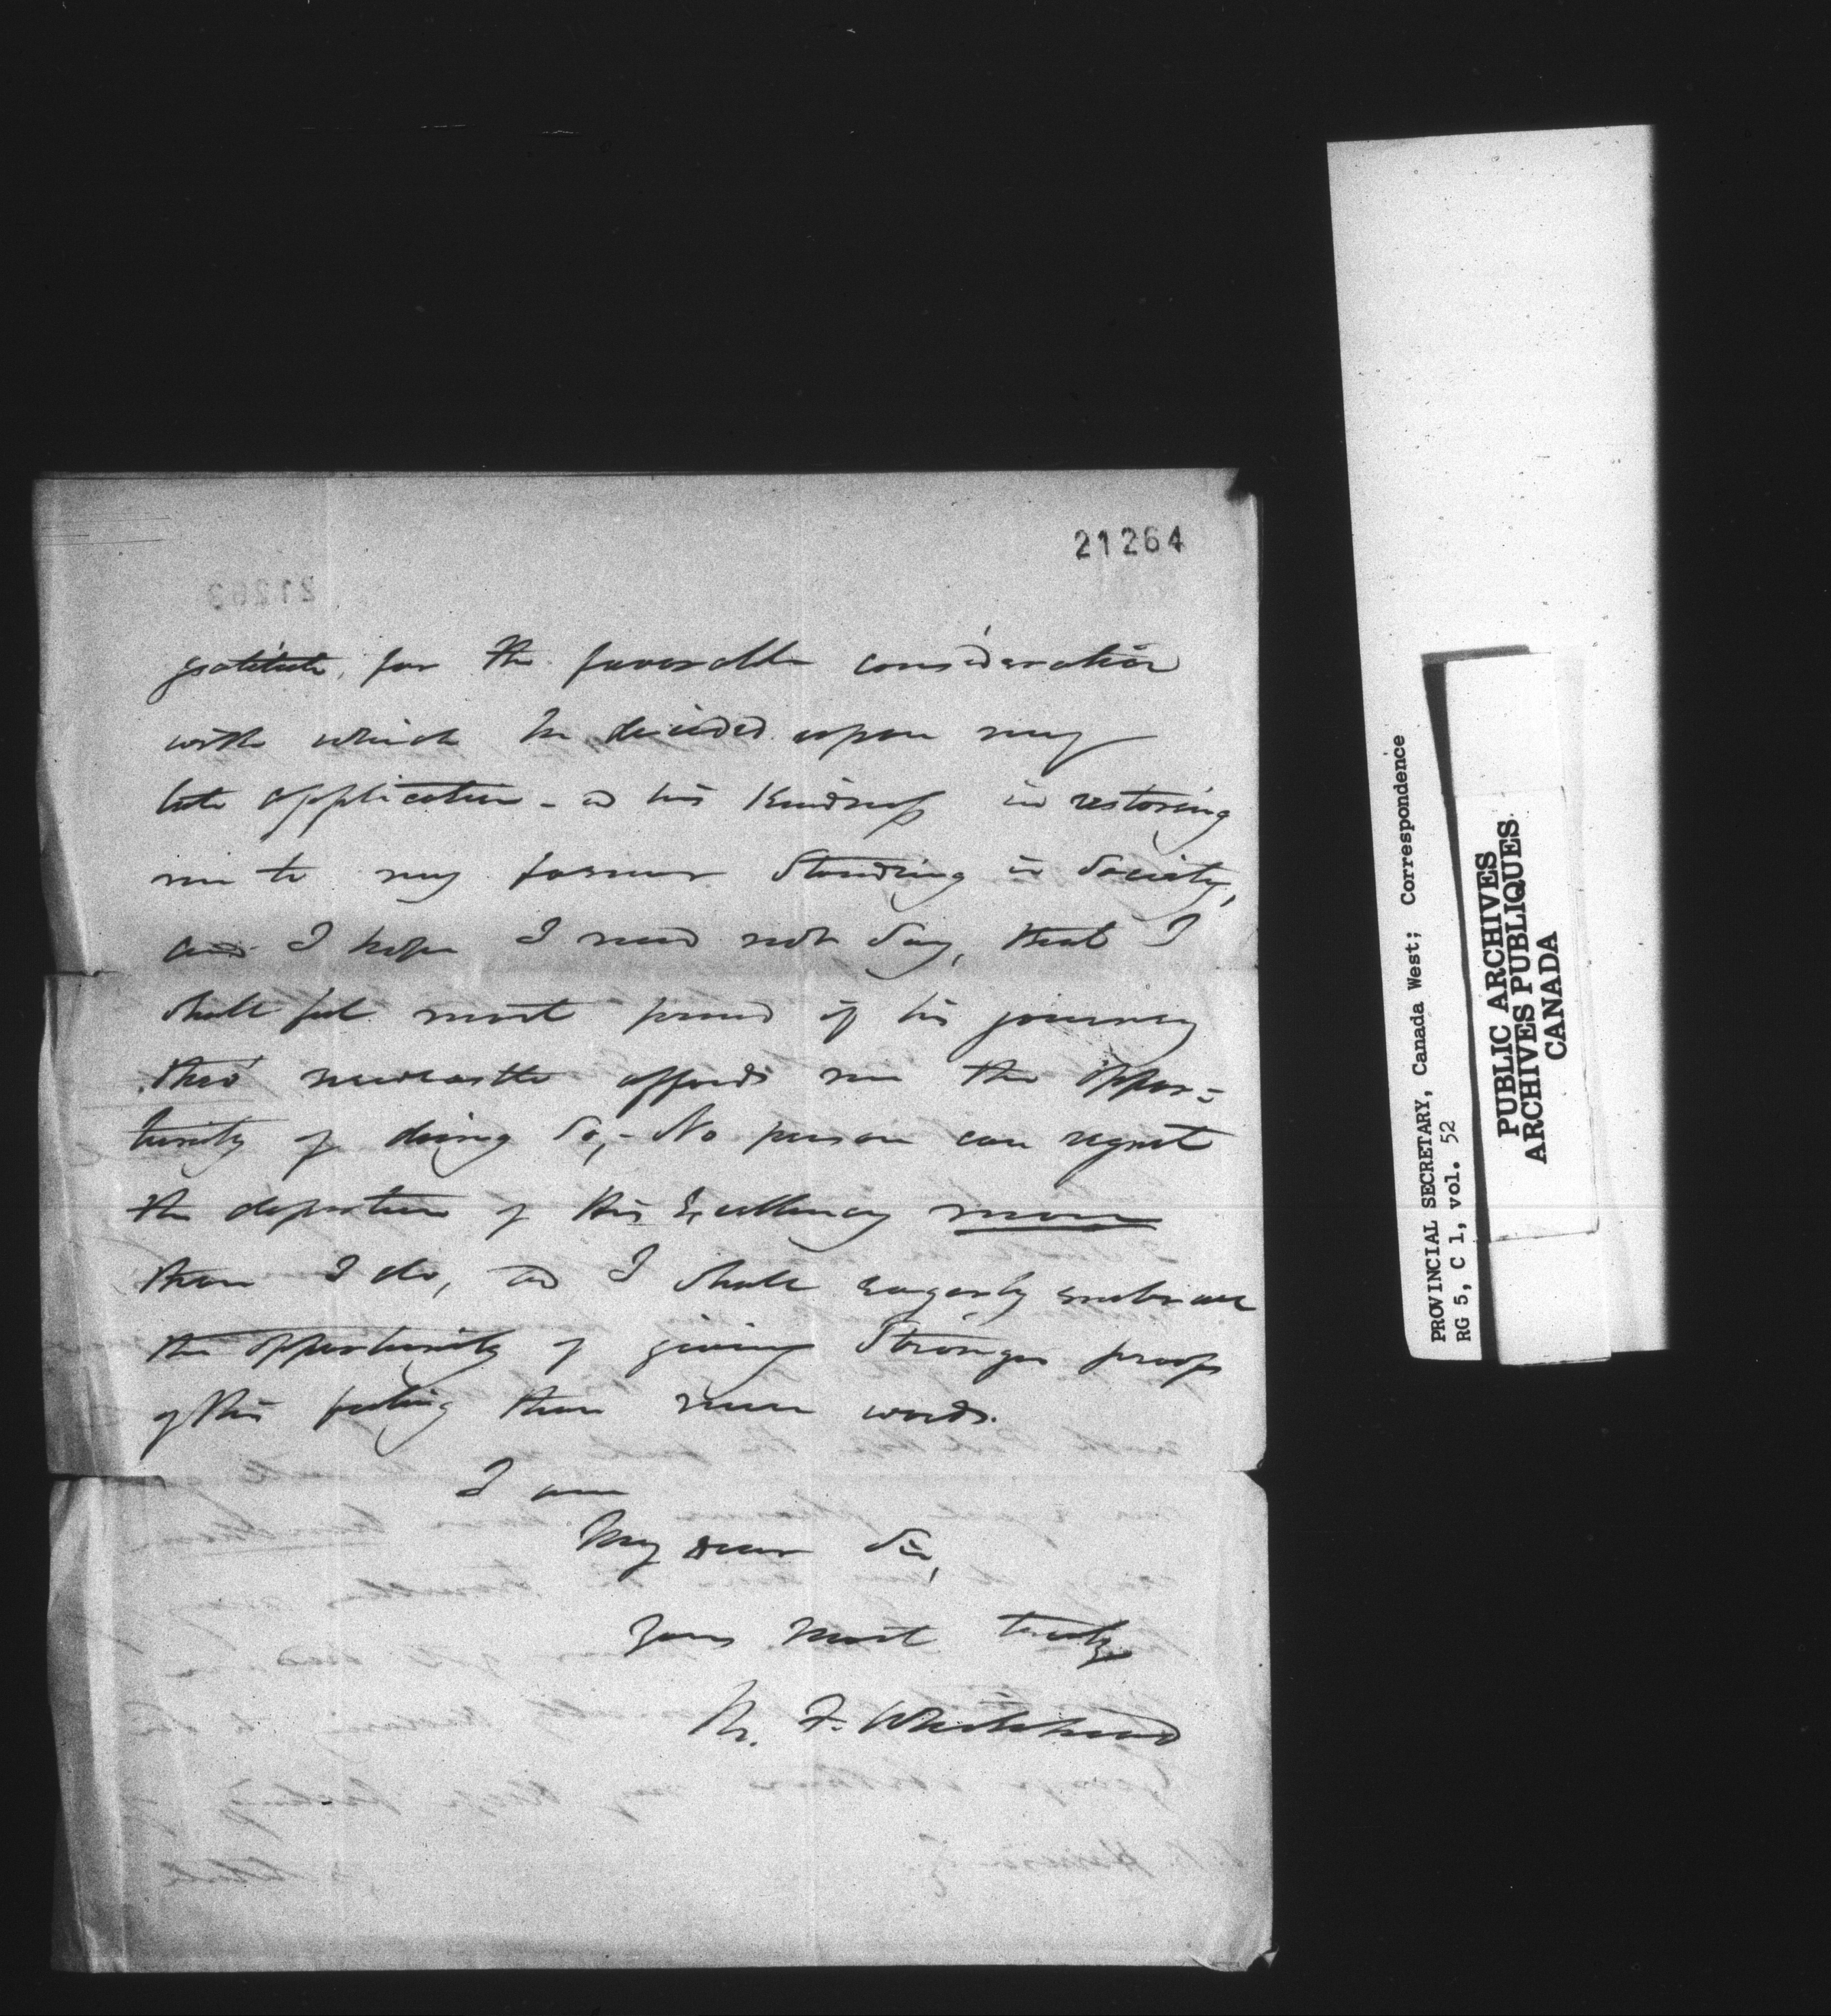 21264
gratitude, for the favorable consideration
with which he decided upon my
late application - & his kindness in restoring
me to my former Standing in Society,
and I hope I need not Say, that I
shall feel most proud if his journey
thro' newcastle affords me the oppor=
tunity of doing So,- No person can regret
the departure of His Excellency more
than I do, & I shall eagerly embrace
the opportunity of giving Stronger proofs
of this feeling than mere words.
I am
My dear Sir,
Yours most truly
M. F. Whitehead
PROVINCIAL SECRETARY, Canada West; Correspondence
RG 5, C 1, vol. 52
PUBLIC ARCHIVES
ARCHIVES PUBLIQUES
CANADA